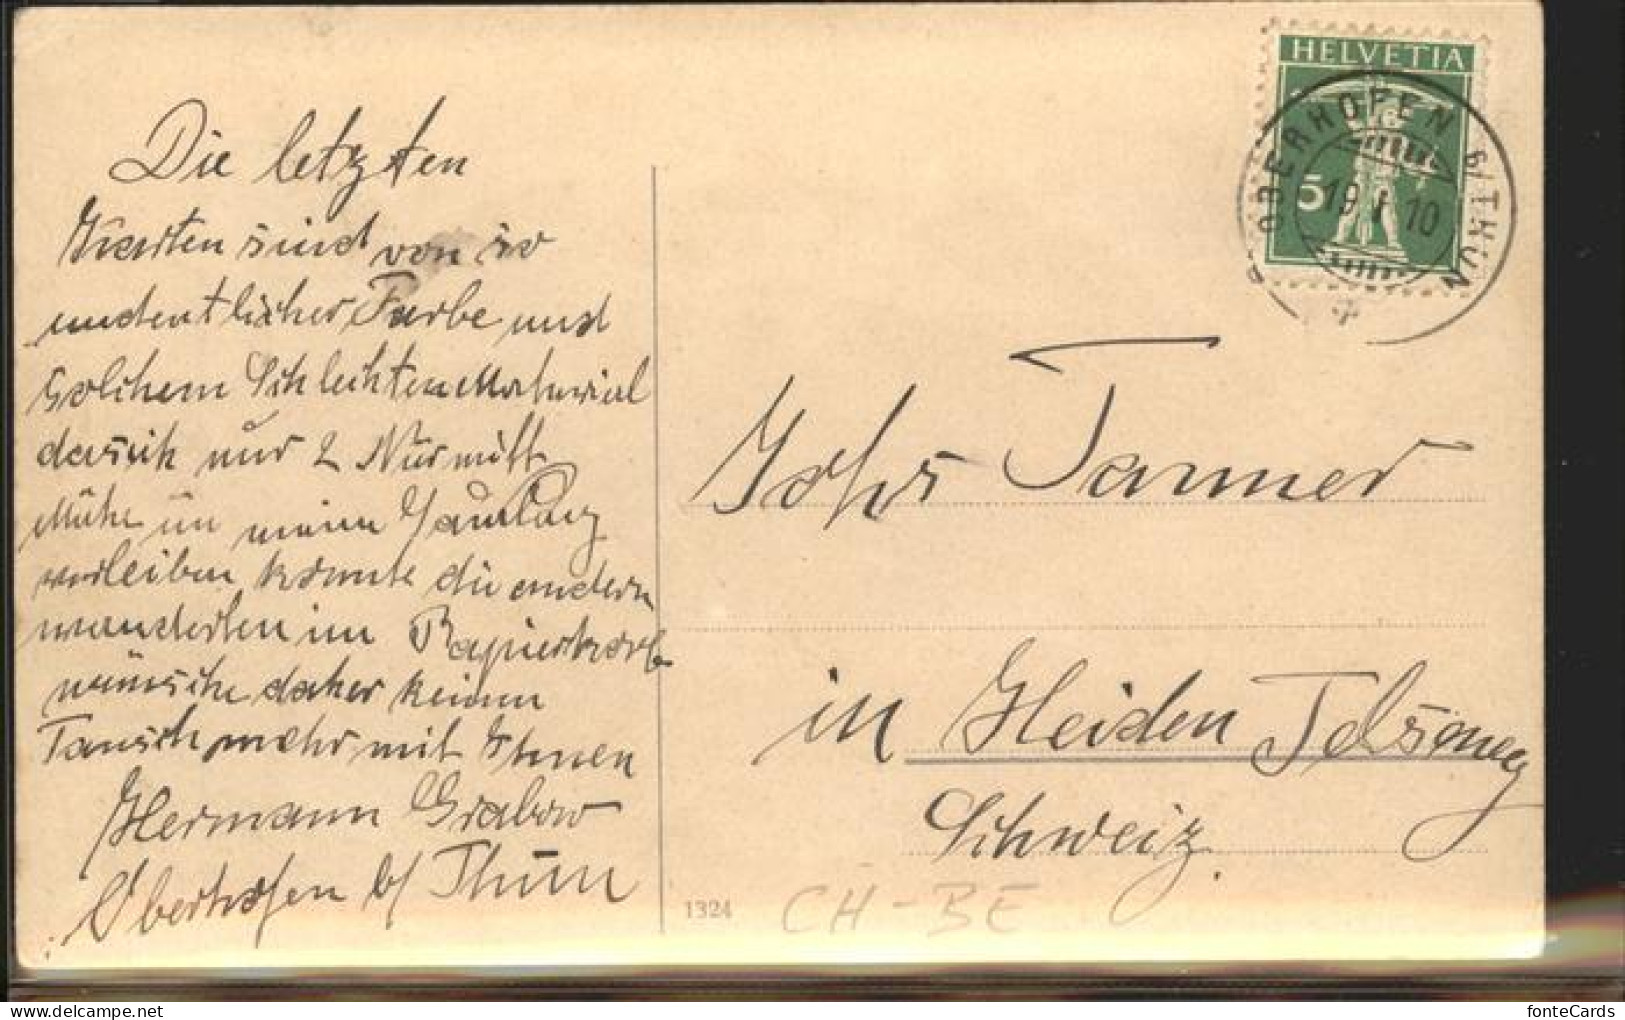 Die letzten
Karten sind von so
undeutlicher Farbe und
solchem schlechten Material
dass ich nur 2 Nur mitt
Mühe in meine Samlung
verleiben konnte die andern
wanderten im Papierkorb
wünsche daher keinen
Tausch mehr mit Ihnen
Hermann Grabow
Oberhofen b/ Thun
HELVETIA
5
OBERHOFEN b/THUN
19 I 10
Johs Tanner
in Heiden
Schweiz.
1324
CH-BE
fonteCards